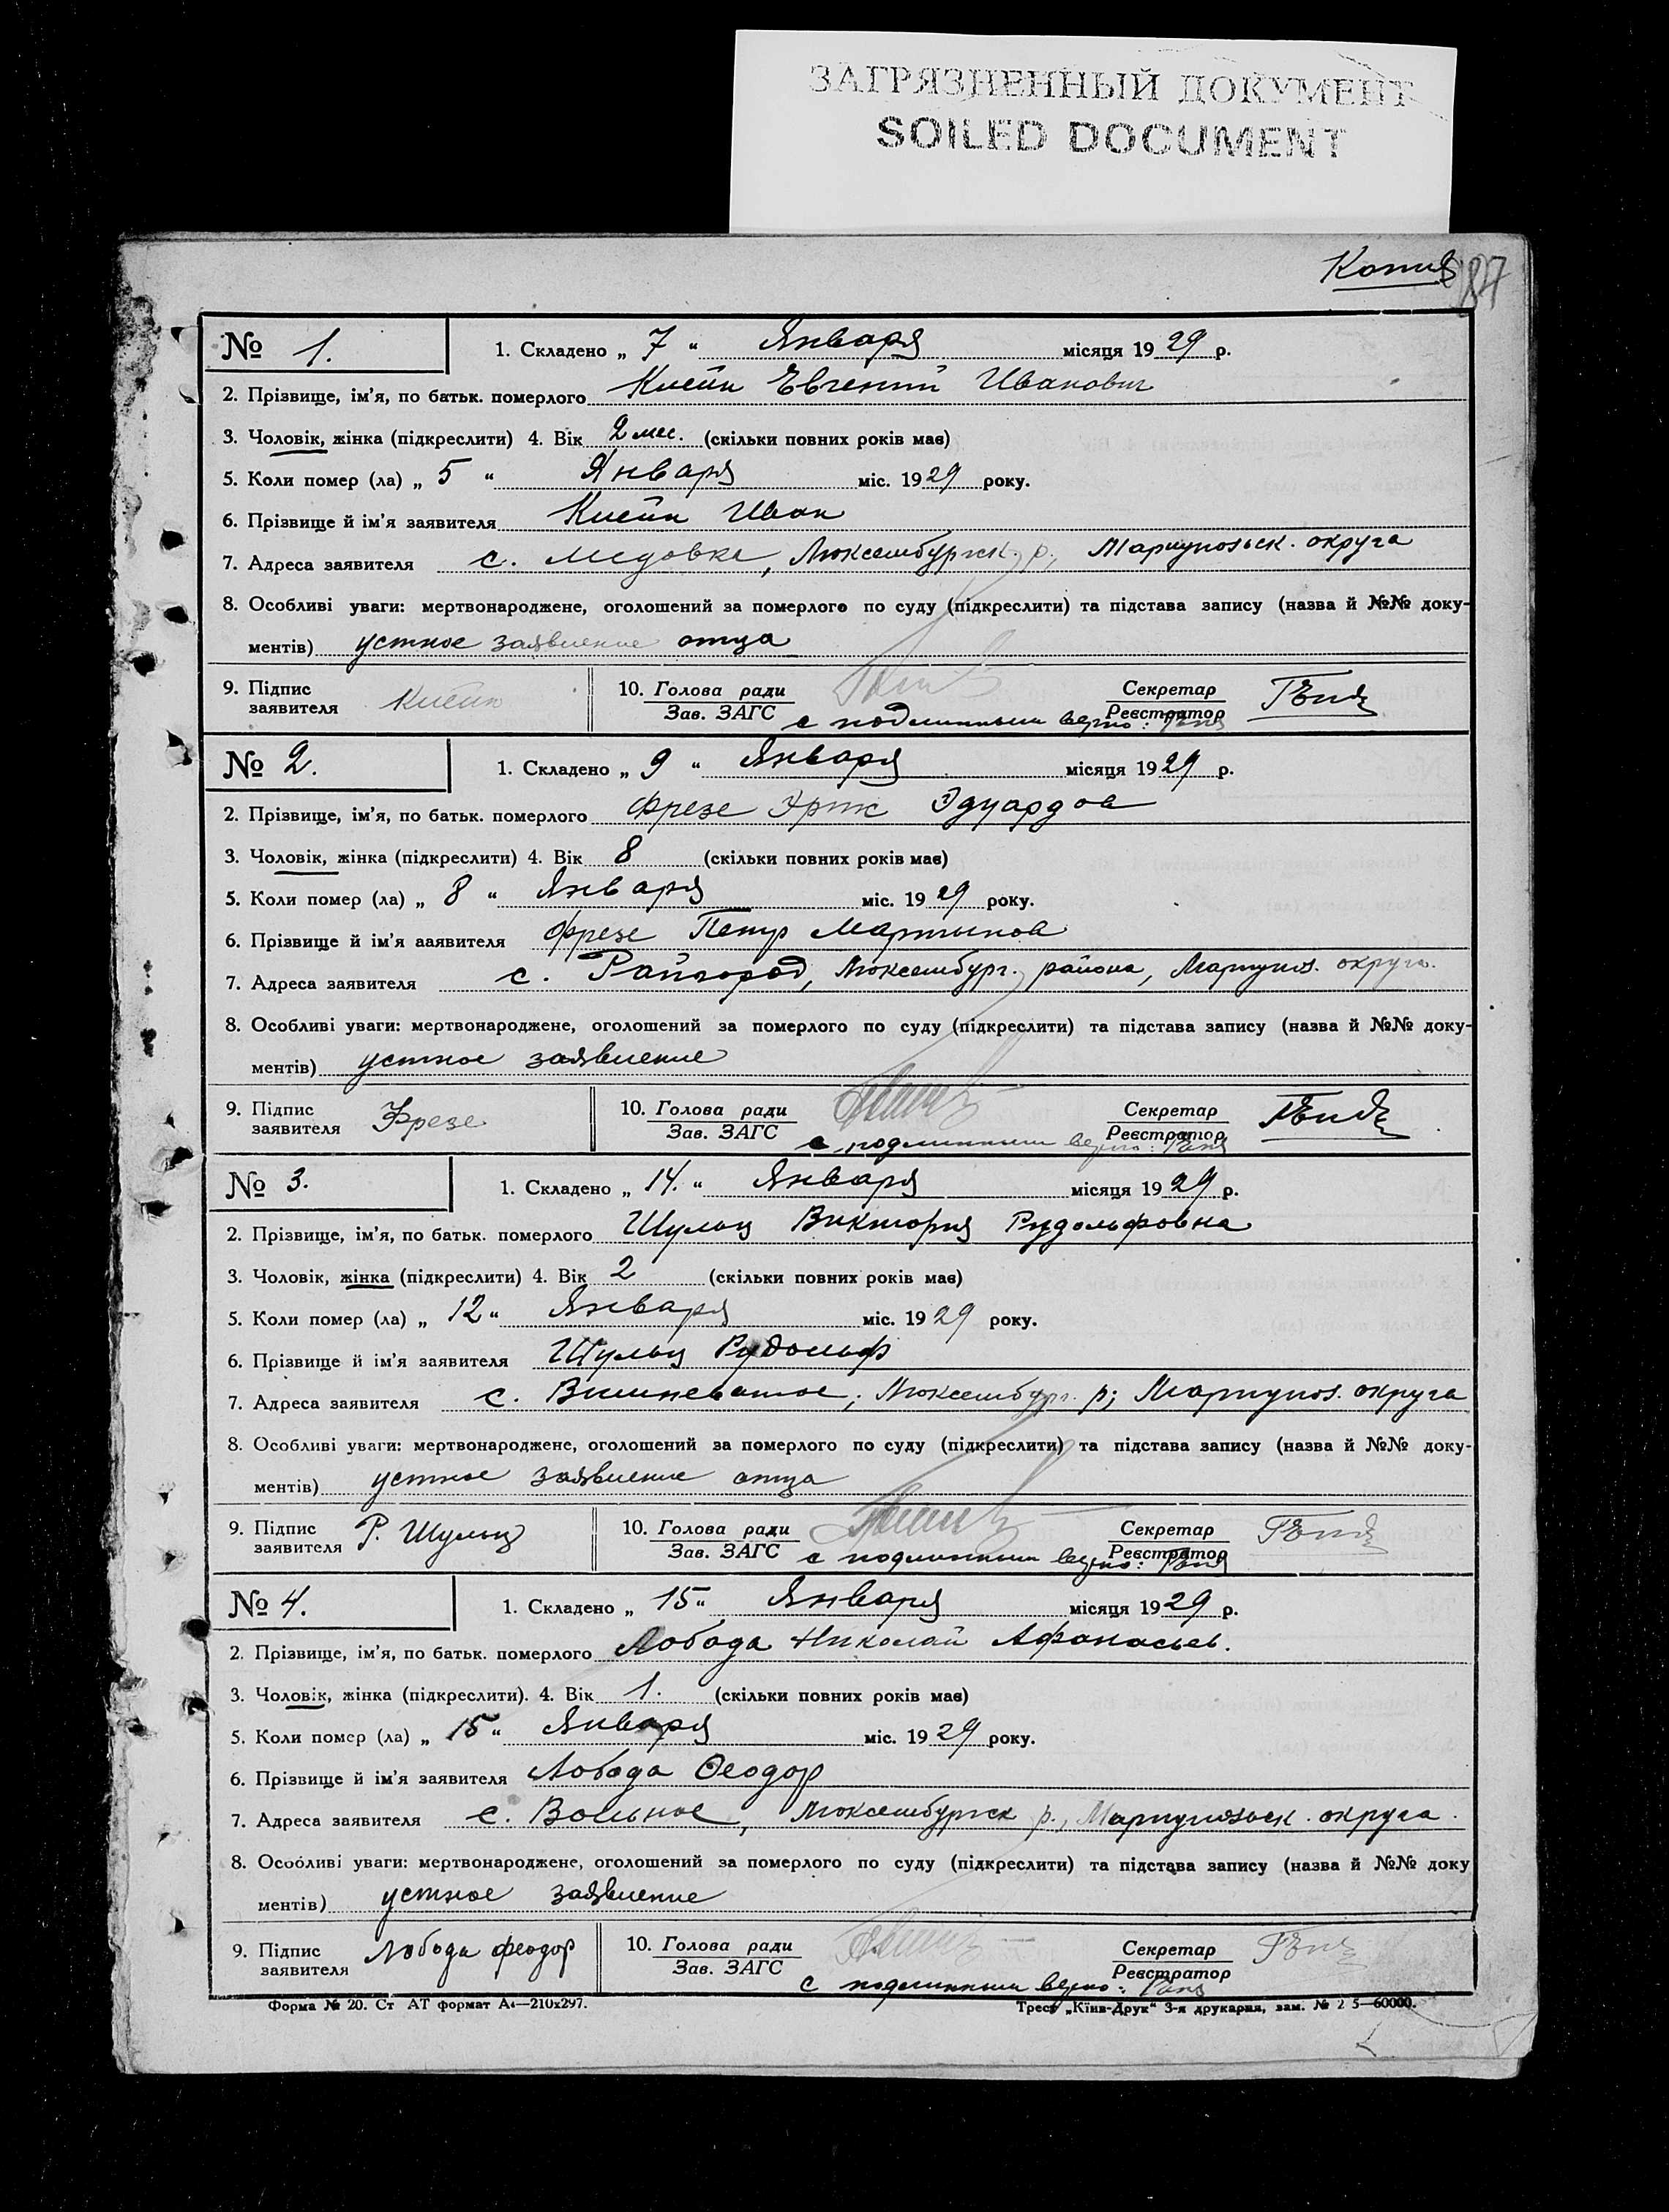 ЗАГРЯЗНЕННЫЙ ДОКУМЕНТ
SOILED DOCUMENT
Копия
№ 1. 1. Складено „ 7 “ Января місяця 1929 р.
2. Прізвище, ім'я, по батьк. померлого Клейн Евгений Иванович
3. Чоловік, жінка (підкреслити) 4. Вік 2 мес. (скільки повних років має)
5. Коли помер (ла) „ 5 “ Января міс. 1929 року.
6. Прізвище й ім'я заявителя Клейн Иван
7. Адреса заявителя с. Медовка, Люксембургск. р., Мариупольск. округа
8. Особливі уваги: мертвонароджене, оголошений за померлого по суду (підкреслити) та підстава запису (назва й №№ доку-
ментів) устное заявление отца
9. Підпис заявителя Клейн 10. Голова ради Зав. ЗАГС Секретар Реєстратор
с подлинным верно:
№ 2. 1. Складено „ 9 “ Января місяця 1929 р.
2. Прізвище, ім'я, по батьк. померлого Фрезе Эрик Эдуардов
3. Чоловік, жінка (підкреслити) 4. Вік 8 (скільки повних років має)
5. Коли помер (ла) „ 8 “ Января міс. 1929 року.
6. Прізвище й ім'я заявителя Фрезе Петр Мартынов
7. Адреса заявителя с. Райгород, Люксембург. района, Мариупол. округа.
8. Особливі уваги: мертвонароджене, оголошений за померлого по суду (підкреслити) та підстава запису (назва й №№ доку-
ментів) устное заявление
9. Підпис заявителя Фрезе 10. Голова ради Зав. ЗАГС Секретар Реєстратор
с подлинным верно:
№ 3. 1. Складено „ 14. “ Января місяця 1929 р.
2. Прізвище, ім'я, по батьк. померлого Шульц Виктория Рудольфовна
3. Чоловік, жінка (підкреслити) 4. Вік 2 (скільки повних років має)
5. Коли помер (ла) „ 12 “ Января міс. 1929 року.
6. Прізвище й ім'я заявителя Шульц Рудольф
7. Адреса заявителя с. Вишневатое, Люксембург. р; Мариупол. округа
8. Особливі уваги: мертвонароджене, оголошений за померлого по суду (підкреслити) та підстава запису (назва й №№ доку-
ментів) устное заявление отца
9. Підпис заявителя Р. Шульц 10. Голова ради Зав. ЗАГС Секретар Реєстратор
с подлинным верно:
№ 4. 1. Складено „ 15 “ Января місяця 1929 р.
2. Прізвище, ім'я, по батьк. померлого Лобода Николай Афанасьев.
3. Чоловік, жінка (підкреслити). 4. Вік 1. (скільки повних років має)
5. Коли помер (ла) „ 15 “ Января міс. 1929 року.
6. Прізвище й ім'я заявителя Лобода Феодор
7. Адреса заявителя с. Вольное, Люксембургск р., Мариупольск. округа.
8. Особливі уваги: мертвонароджене, оголошений за померлого по суду (підкреслити) та підстава запису (назва й №№ доку
ментів) устное заявление
9. Підпис заявителя Лобода Феодор 10. Голова ради Зав. ЗАГС Секретар Реєстратор
с подлинным верно:
Форма № 20. Ст АТ формат А4—210х297. Трест „Київ-Друк“ 3-я друкарня, зам. № 2 5—60000.